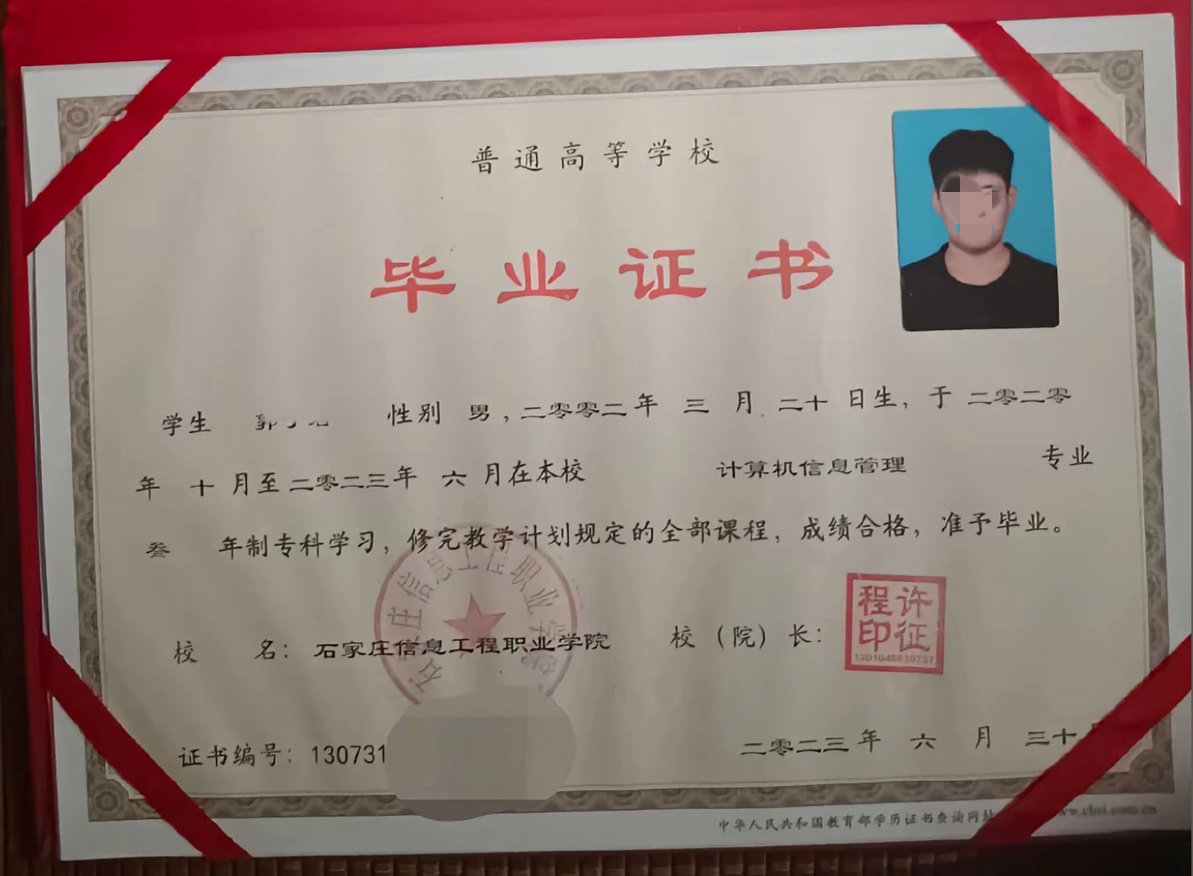 普通高等学校
毕业证书
学生 性别 男，二零零二年 三 月 二十 日生，于 二零二零
年 十 月至 二零二三年 六 月在本校 计算机信息管理 专业
叁 年制专科学习，修完教学计划规定的全部课程，成绩合格，准予毕业。
石家庄信息工程职业学院
校 名：石家庄信息工程职业学院 校（院）长：
程许
印征
证书编号：130731
二零二三年 六 月 三十
中华人民共和国教育部学历证书查询网址 www.chsi.com.cn